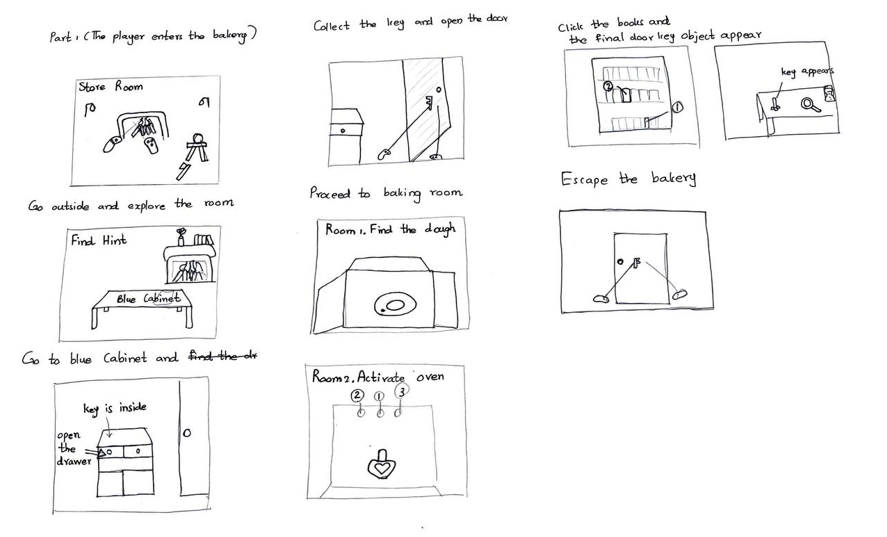 Part 1 (The player enters the bakery)
Store Room
Go outside and explore the room
Find Hint
Blue Cabinet
Go to blue Cabinet and find the dr
key is inside
open
the
drawer
Collect the key and open the door
Proceed to baking room
Room 1. Find the dough
Room 2. Activate oven
② ① ③
Click the books and
the final door key object appear
②
①
key appears
Escape the bakery